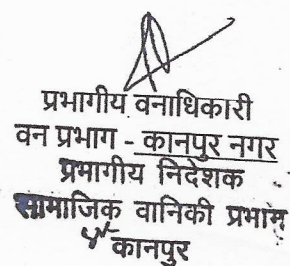 प्रभागीय वनाधिकारी
वन प्रभाग - कानपुर नगर
प्रभागीय निदेशक
सामाजिक वानिकी प्रभाग
कानपुर